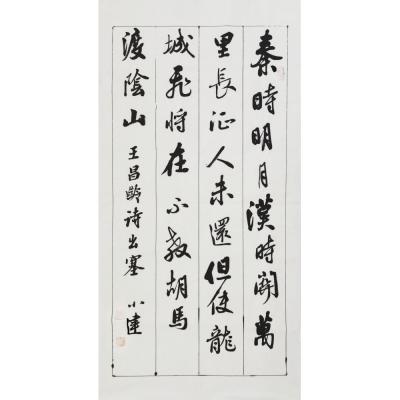 秦時明月漢時關萬
里長征人未還但使龍
城飛將在不教胡馬
渡陰山 王昌齡詩出塞 小建